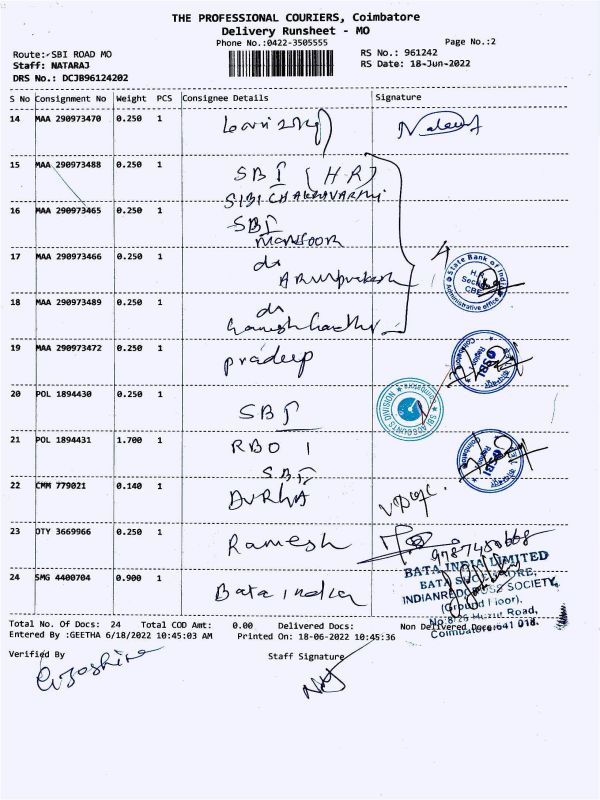 THE PROFESSIONAL COURIERS, Coimbatore
Delivery Runsheet - MO
Phone No.:0422-3505555
Page No.:2
Route:-SBI ROAD MO
RS No.: 961242
Staff: NATARAJ
RS Date: 18-Jun-2022
DRS No.: DCJB96124202
S No Consignment No Weight PCS Consignee Details Signature
14 MAA 290973470 0.250 1
15 MAA 290973488 0.250 1 SBI (HR)
SIBI CHAKRAVARTHI
16 MAA 290973465 0.250 1 SBI
mansoor
17 MAA 290973466 0.250 1 do
Arunprakash
State Bank of India
Administrative office
18 MAA 290973489 0.250 1 do
19 MAA 290973472 0.250 1 pradeep
SBI
20 POL 1894430 0.250 1 SBI
SBI ACCOUNTS DIVISION
21 POL 1894431 1.700 1 RBO 1
SBI
SBI
22 CMM 779021 0.140 1 DURGA
23 OTY 3669966 0.250 1 Ramesh
9787450668
BATA INDIA LIMITED
24 SMG 4400704 0.900 1 Bata india
(Ground Floor),
Coimbatore-641 018.
Total No. Of Docs: 24 Total COD Amt: 0.00 Delivered Docs: Non Delivered Docs:
Entered By :GEETHA 6/18/2022 10:45:03 AM Printed On: 18-06-2022 10:45:36
Verified By
Staff Signature